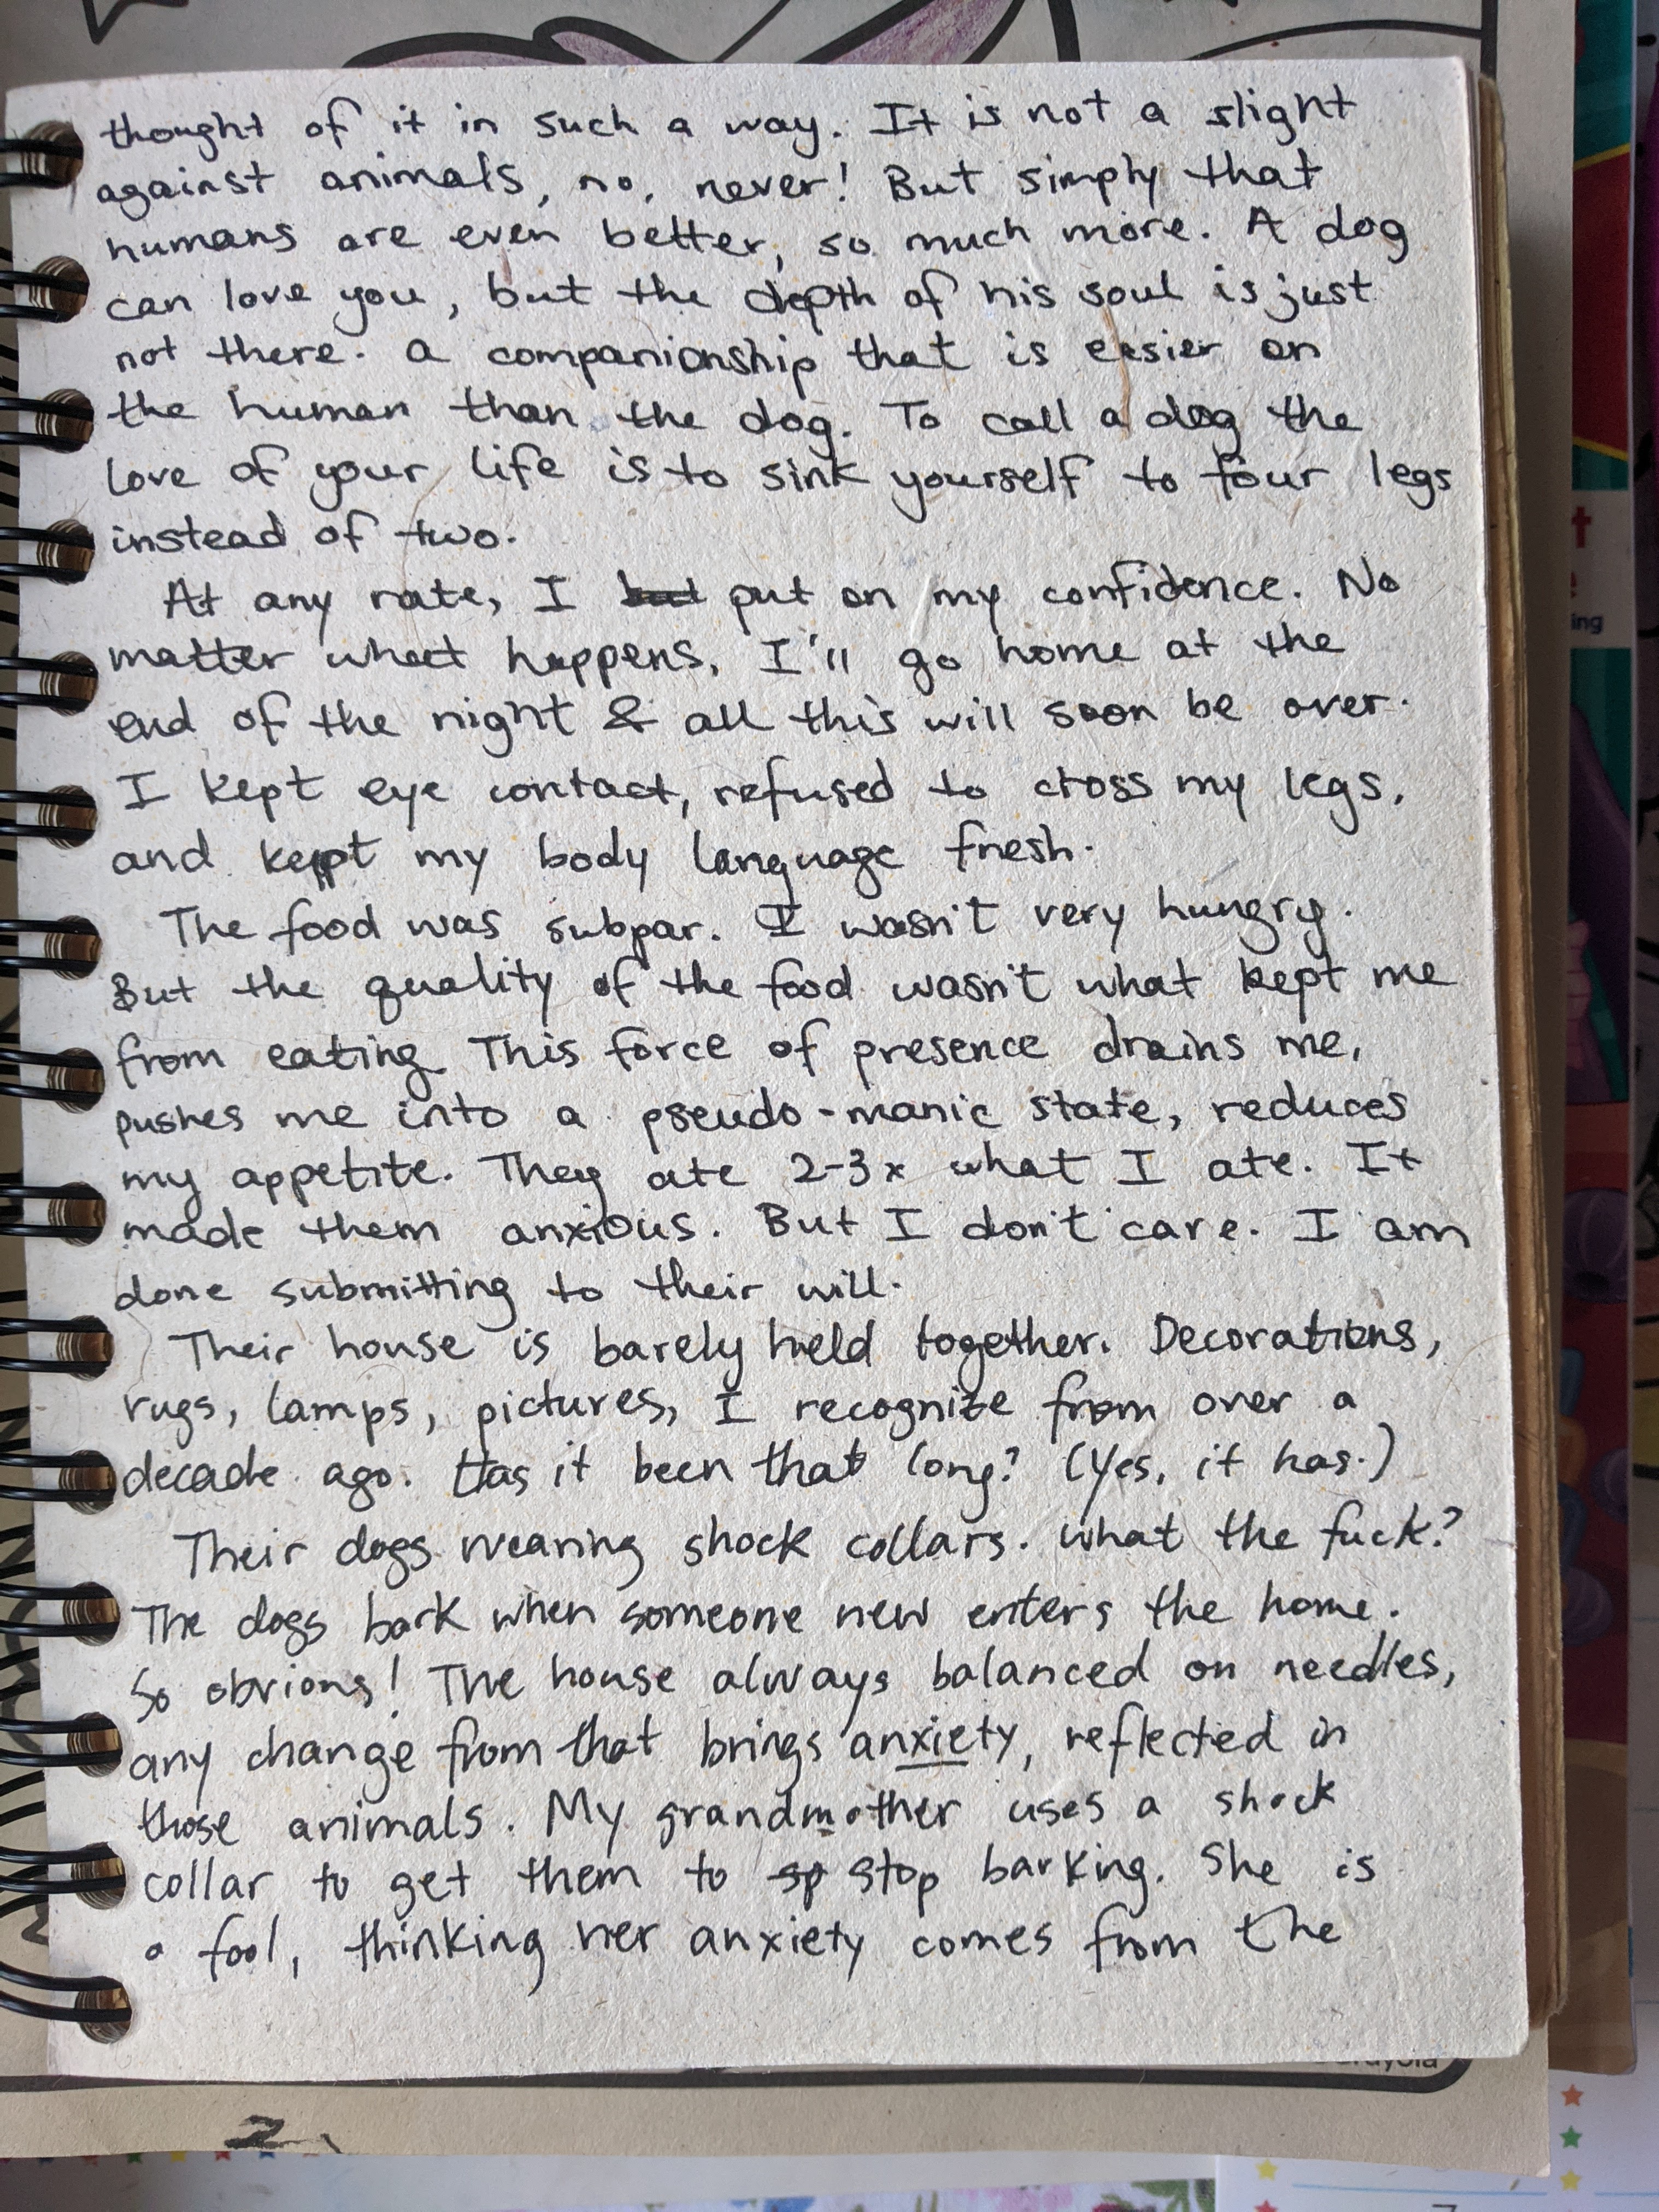 thought of it in such a way. It is not a slight
against animals, no, never! But simply that
humans are even better, so much more. A dog
can love you, but the depth of his soul is just
not there. a companionship that is easier on
the human than the dog. To call a dog the
love of your life is to sink yourself to four legs
instead of two.
At any rate, I but put on my confidence. No
matter what happens, I'll go home at the
end of the night & all this will soon be over.
I kept eye contact, refused to cross my legs,
and kept my body language fresh.
The food was subpar. I wasn't very hungry.
But the quality of the food wasn't what kept me
from eating This force of presence drains me,
pushes me into a pseudo-manic state, reduces
my appetite. They ate 2-3x what I ate. It
made them anxious. But I don't care. I am
done submitting to their will.
Their house is barely held together. Decorations,
rugs, lamps, pictures, I recognize from over a
decade ago. Has it been that long? (Yes, it has.)
Their dogs wearing shock collars. What the fuck?
The dogs bark when someone new enters the home.
So obvious! The house always balanced on needles,
any change from that brings anxiety, reflected in
those animals. My grandmother uses a shock
collar to get them to sp stop barking. She is
a fool, thinking her anxiety comes from the
ing
2